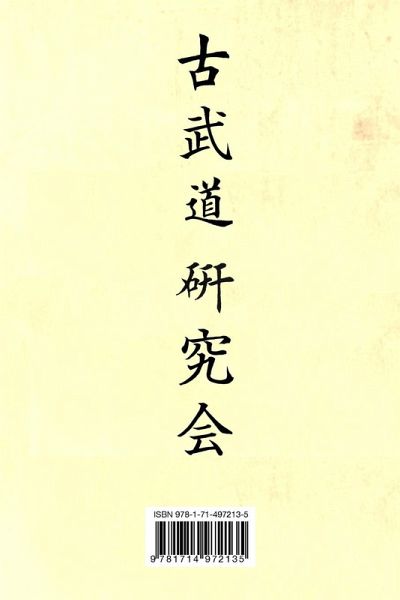 古武道研究会
ISBN 978-1-71-497213-5
9 781714 972135